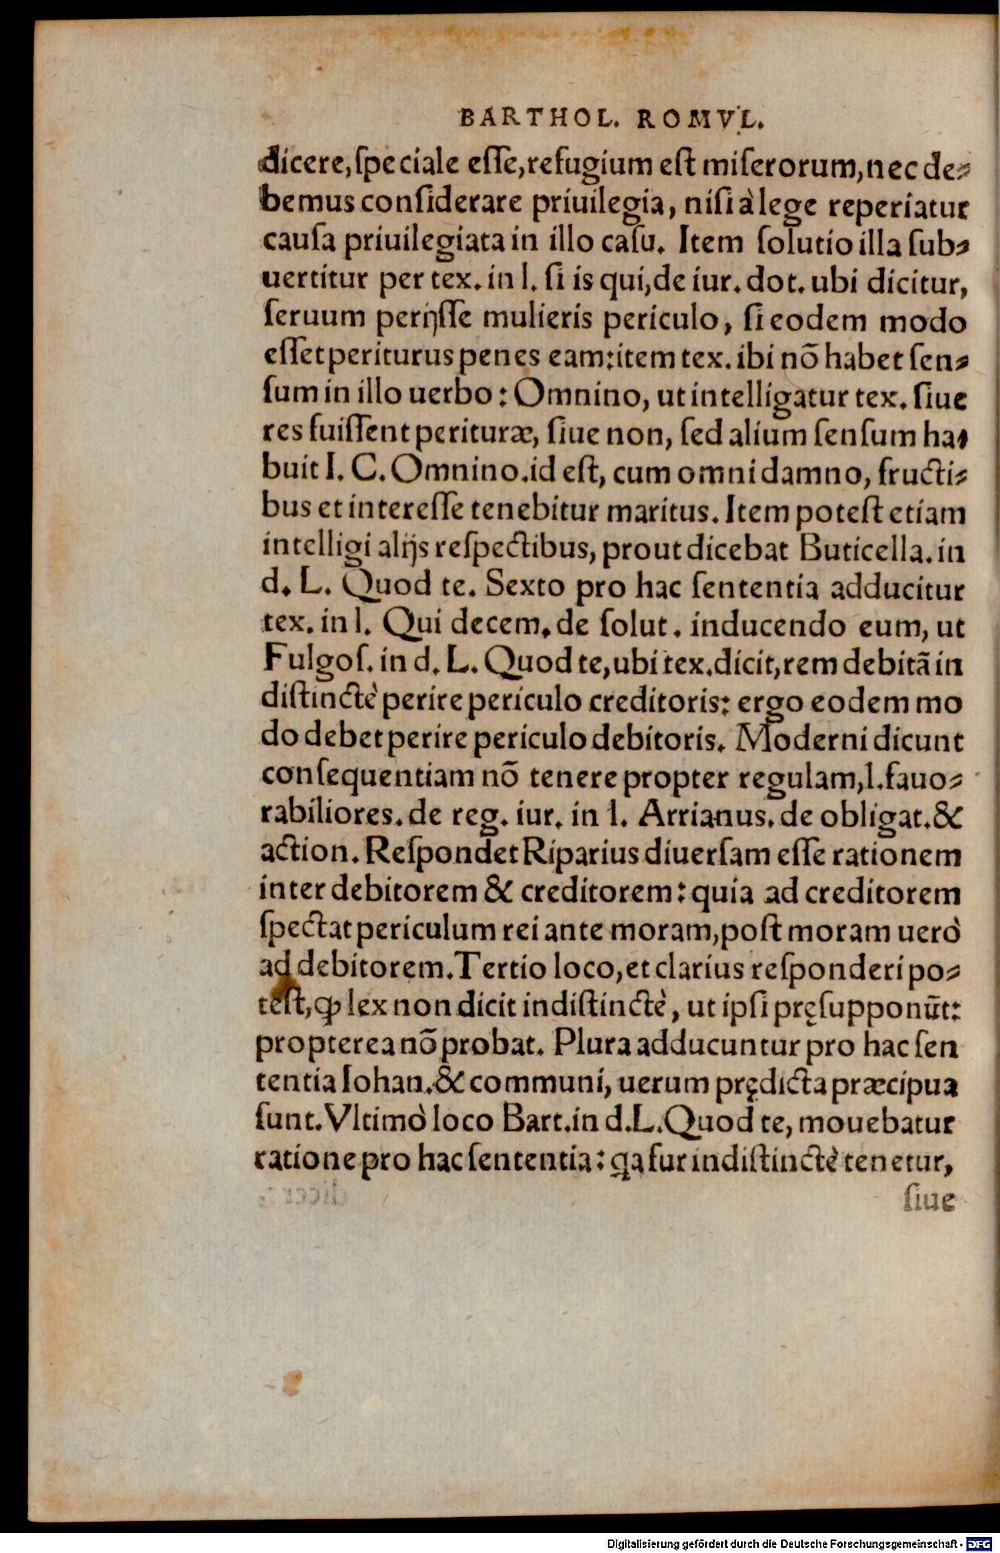 BARTHOL. ROMVL.
dicere, ſpeciale eſſe, refugium eſt miſerorum, nec de⸗
bemus conſiderare priuilegia, niſi à lege reperiatur
cauſa priuilegiata in illo caſu. Item ſolutio illa ſub⸗
uertitur per tex. in l. ſi is qui, de iur. dot. ubi dicitur,
ſeruum perijſſe mulieris periculo, ſi eodem modo
eſſet periturus penes eam: item tex. ibi nō habet ſen⸗
ſum in illo uerbo: Omnino, ut intelligatur tex. ſiue
res fuiſſent perituræ, ſiue non, ſed alium ſenſum ha⸗
buit I. C. Omnino. id eſt, cum omni damno, fructi⸗
bus et intereſſe tenebitur maritus. Item poteſt etiam
intelligi alijs reſpectibus, prout dicebat Buticella. in
d. L. Quod te. Sexto pro hac ſententia adducitur
tex. in l. Qui decem. de ſolut. inducendo eum, ut
Fulgoſ. in d. L. Quod te, ubi tex. dicit, rem debitā in
diſtinctè perire periculo creditoris: ergo eodem mo
do debet perire periculo debitoris. Moderni dicunt
conſequentiam nō tenere propter regulam, l. fauo⸗
rabiliores. de reg. iur. in l. Arrianus. de obligat. &
action. Reſpondet Riparius diuerſam eſſe rationem
inter debitorem & creditorem: quia ad creditorem
ſpectat periculum rei ante moram, poſt moram uerò
ad debitorem. Tertio loco, et clarius reſponderi po⸗
teſt, ꝙ lex non dicit indiſtinctè, ut ipſi pręſupponūt:
propterea nō probat. Plura adducuntur pro hac ſen
tentia Iohan. & communi, uerum prędicta præcipua
ſunt. Vltimò loco Bart. in d. L. Quod te, mouebatur
ratione pro hac ſententia: ꝗa fur indiſtinctè tenetur,
ſiue
Digitalisierung gefördert durch die Deutsche Forschungsgemeinschaft - DFG